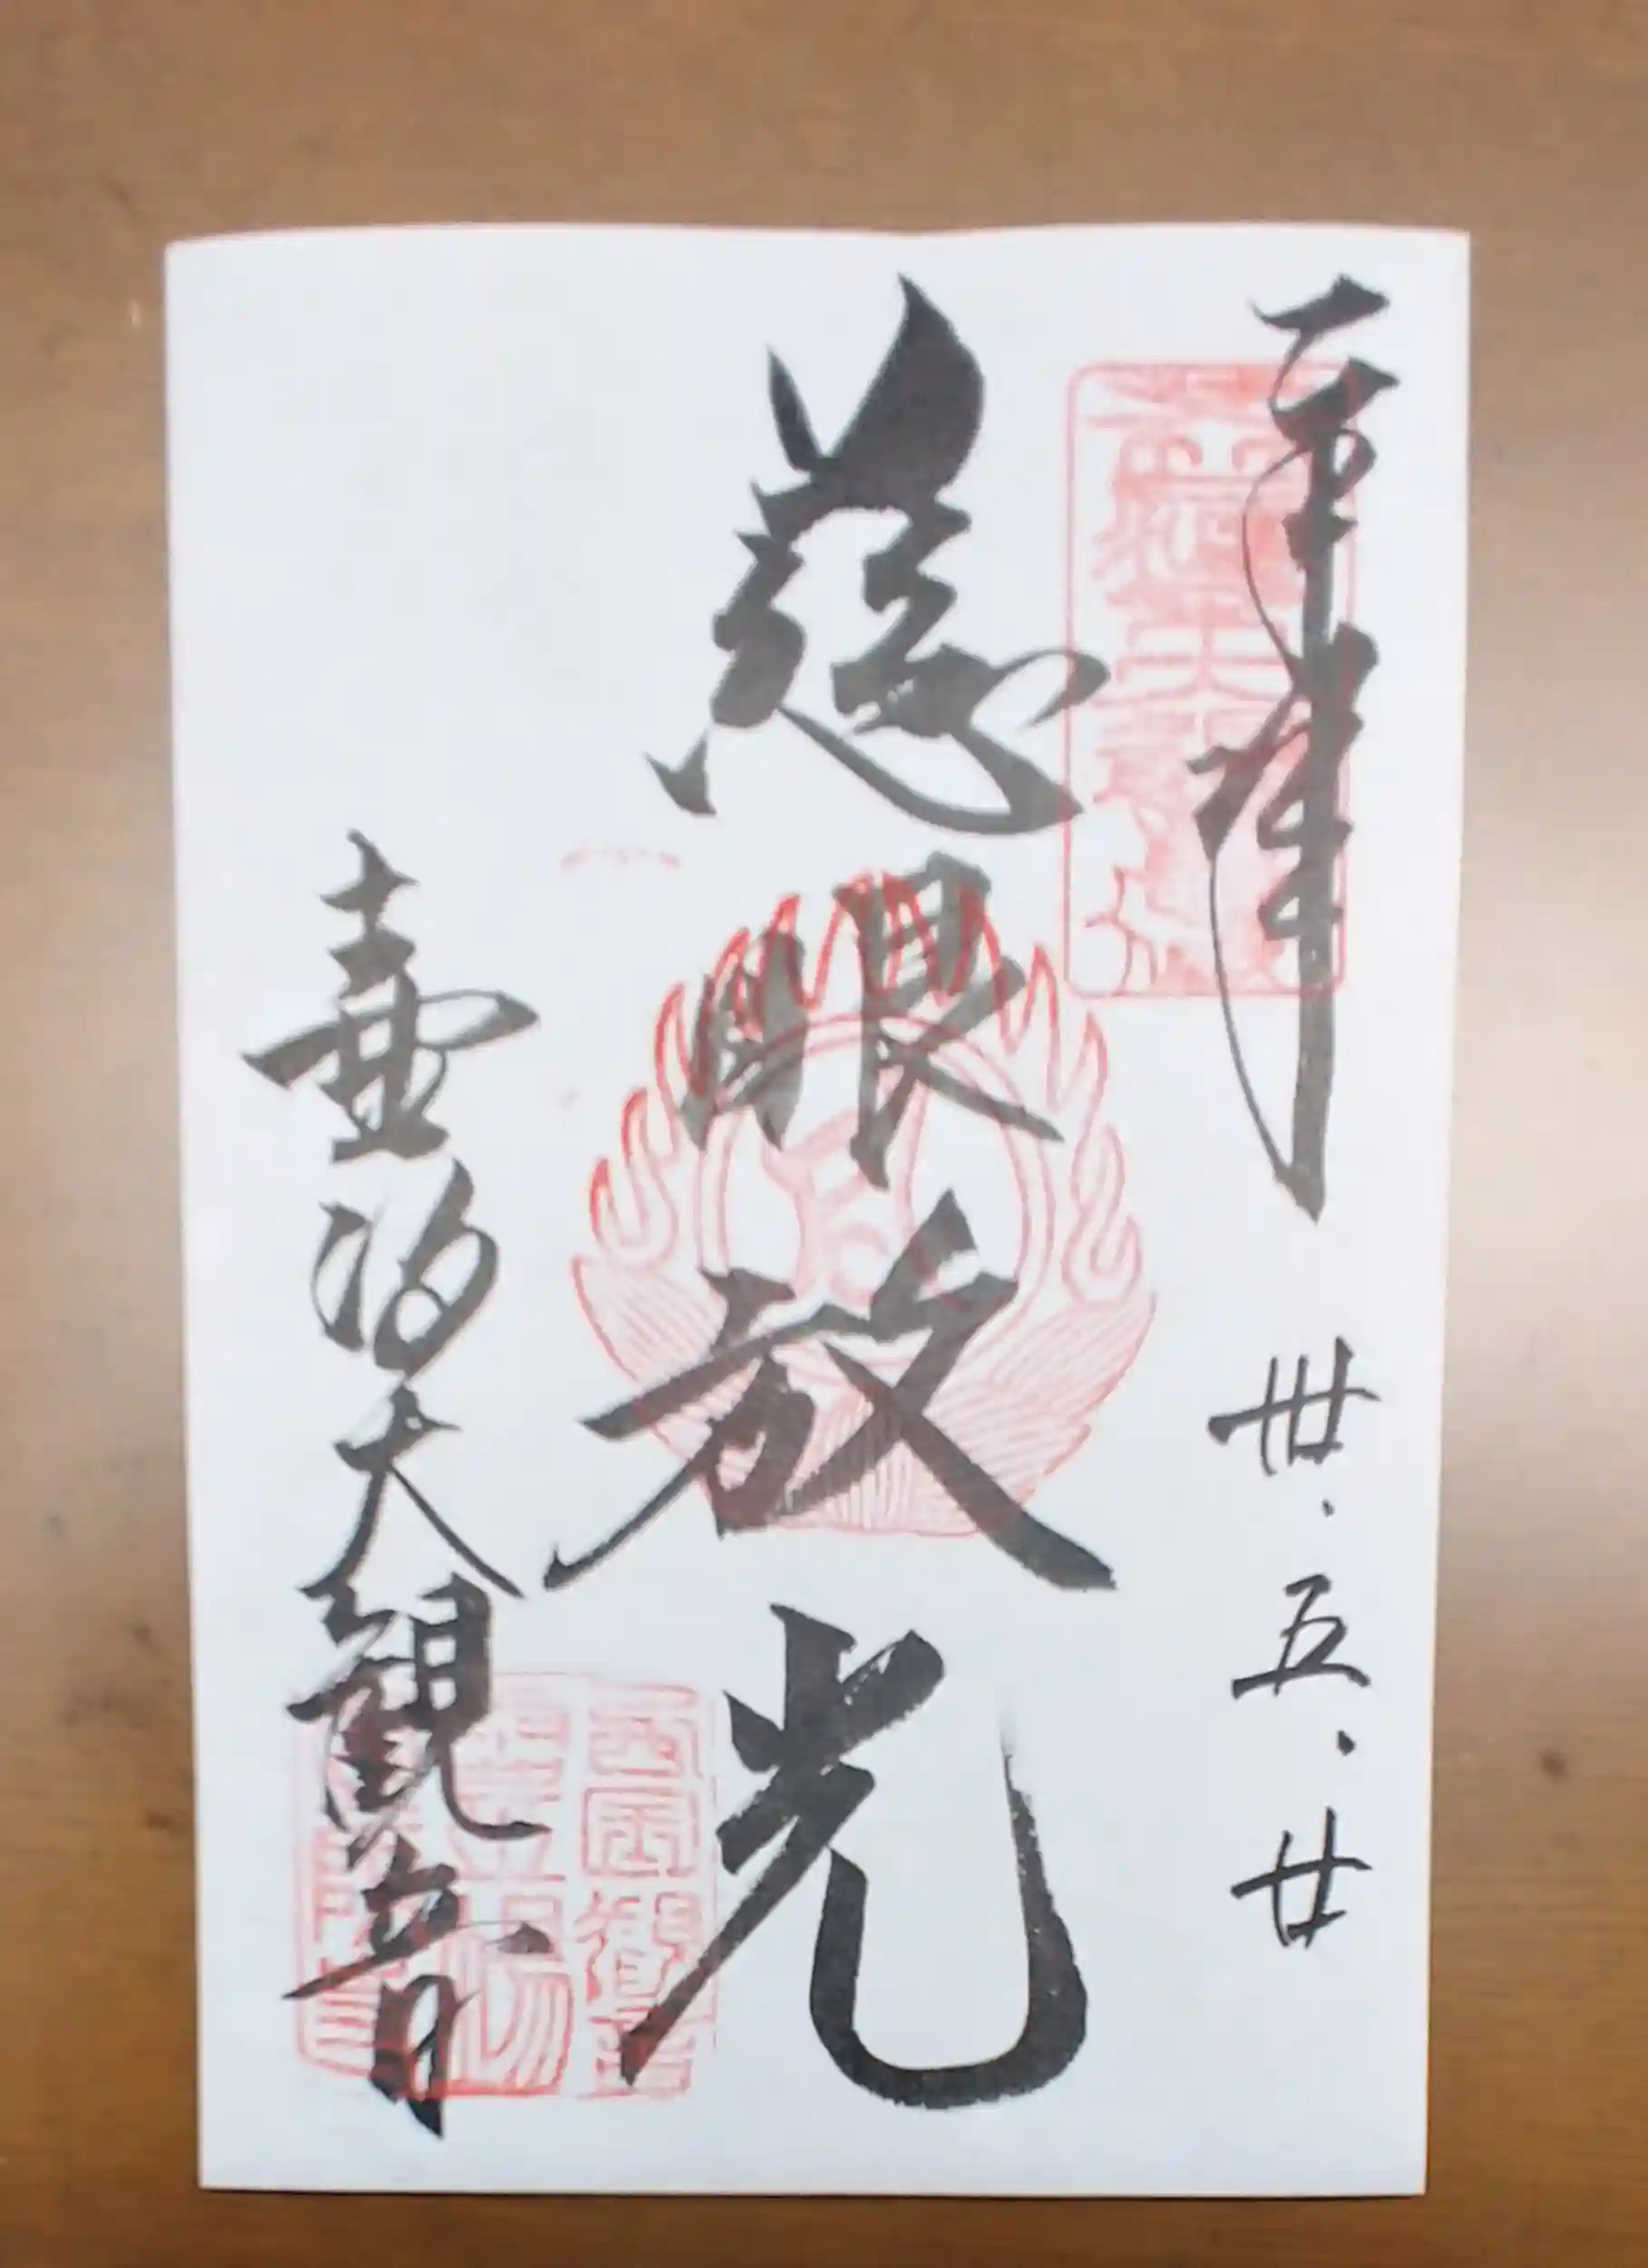 奉拝 卅・五・廿
慈眼放光
壷阪大観音